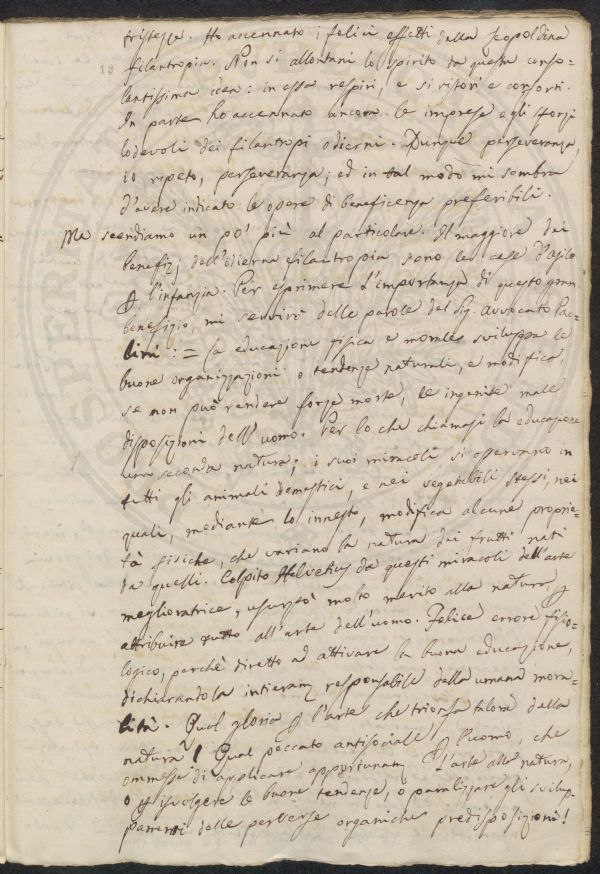 tristezze. Ho accennato i felici effetti dalla Leopoldina
filantropia. Non si allontani lo spirito da questa conso-
lantissima idea: in essa respiri, e si ristori e conforti.
In parte ho accennato ancora le imprese e gli sforzi
lodevoli dei filantropi odierni. Dunque perseveranza,
io ripeto, perseveranza; ed in tal modo mi sembra
d'avere indicato le opere di beneficenza preferibili.
Ma scendiamo un po' più al particolare. Il maggiore dei
benefizj dell'odierna filantropia sono le case d'asilo
l'infanzia. Per esprimere l'importanza di questo gran
benefizio, mi servirò delle parole del Sig. avvocato
: = La educazione fisica e morale sviluppa le
buone organizzazioni o tendenze naturali, e modifica,
se non può rendere forze morte, le ingenite male
disposizioni dell'uomo. Per lo che chiamasi la educazione
una seconda natura; i suoi miracoli si osservano in
tutti gli animali domestici, e nei vegetabili stessi, nei
quali, mediante lo innesto, modifica alcune proprie=
tà fisiche, che variano la natura dei frutti nati
da quelli. Colpito Helvetius da questi miracoli dell'arte
meglioratrice, usurpò molto merito alla natura
attribuire tutto all'arte dell'uomo. Felice errore fisio=
logico, perchè diretto ad attivare la buona educazione,
dichiarandola intieram responsabile della umana mora=
lità. Qual gloria l'arte che trionfa talora della
natura! Qual peccato antisociale l'uomo, che
ommesse di applicare opportunam l'arte alla natura,
o svolgere le buone tendenze, o paralizzare gli svilup-
pamenti delle perverse organiche predisposizioni!